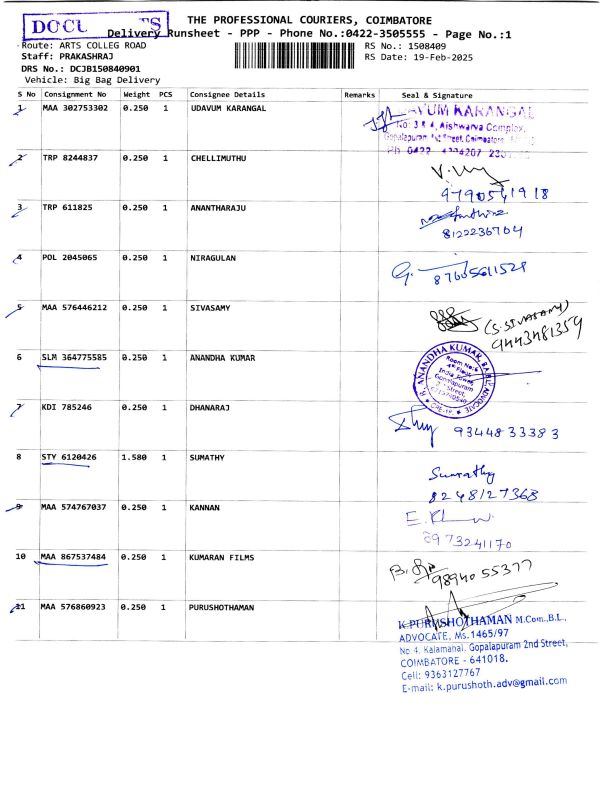 THE PROFESSIONAL COURIERS, COIMBATORE
Delivery Runsheet - PPP - Phone No.:0422-3505555 - Page No.:1
Route: ARTS COLLEG ROAD
RS No.: 1508409
Staff: PRAKASHRAJ
RS Date: 19-Feb-2025
DRS No.: DCJB150840901
Vehicle: Big Bag Delivery
S No Consignment No Weight PCS Consignee Details Remarks Seal & Signature
1 MAA 302753302 0.250 1 UDAVUM KARANGAL
UM KARANGAL
No: 3 & 4, Aishwarya Complex,
Gopalapuram 1st Street, Coimbatore
Ph 0422
2 TRP 8244837 0.250 1 CHELLIMUTHU
9790541918
3 TRP 611825 0.250 1 ANANTHARAJU
8122236704
4 POL 2045065 0.250 1 NIRAGULAN
87605611529
5 MAA 576446212 0.250 1 SIVASAMY
(S.SIVASAMY)
9443481359
6 SLM 364775585 0.250 1 ANANDHA KUMAR
ANANDHA KUMAR, ADVOCATE
Room No:6
4th Floor
Gopalapuram
Street,
7 KDI 785246 0.250 1 DHANARAJ
9344833383
8 STY 6120426 1.580 1 SUMATHY
Sumathy
8248127368
9 MAA 574767037 0.250 1 KANNAN
8973241170
10 MAA 867537484 0.250 1 KUMARAN FILMS
9894055377
11 MAA 576860923 0.250 1 PURUSHOTHAMAN
K.PURUSHOTHAMAN M.Com.,B.L.,
ADVOCATE, Ms.1465/97
No 4, Kalamahal, Gopalapuram 2nd Street,
COIMBATORE - 641018.
Cell: 9363127767
E-mail: k.purushoth.adv@gmail.com